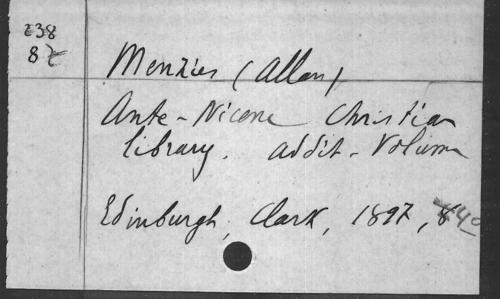 238
87
Menzies (Allan)
Ante-Nicene Christian
library. addit-Volume
Edinburgh, Clark, 1897, 4o